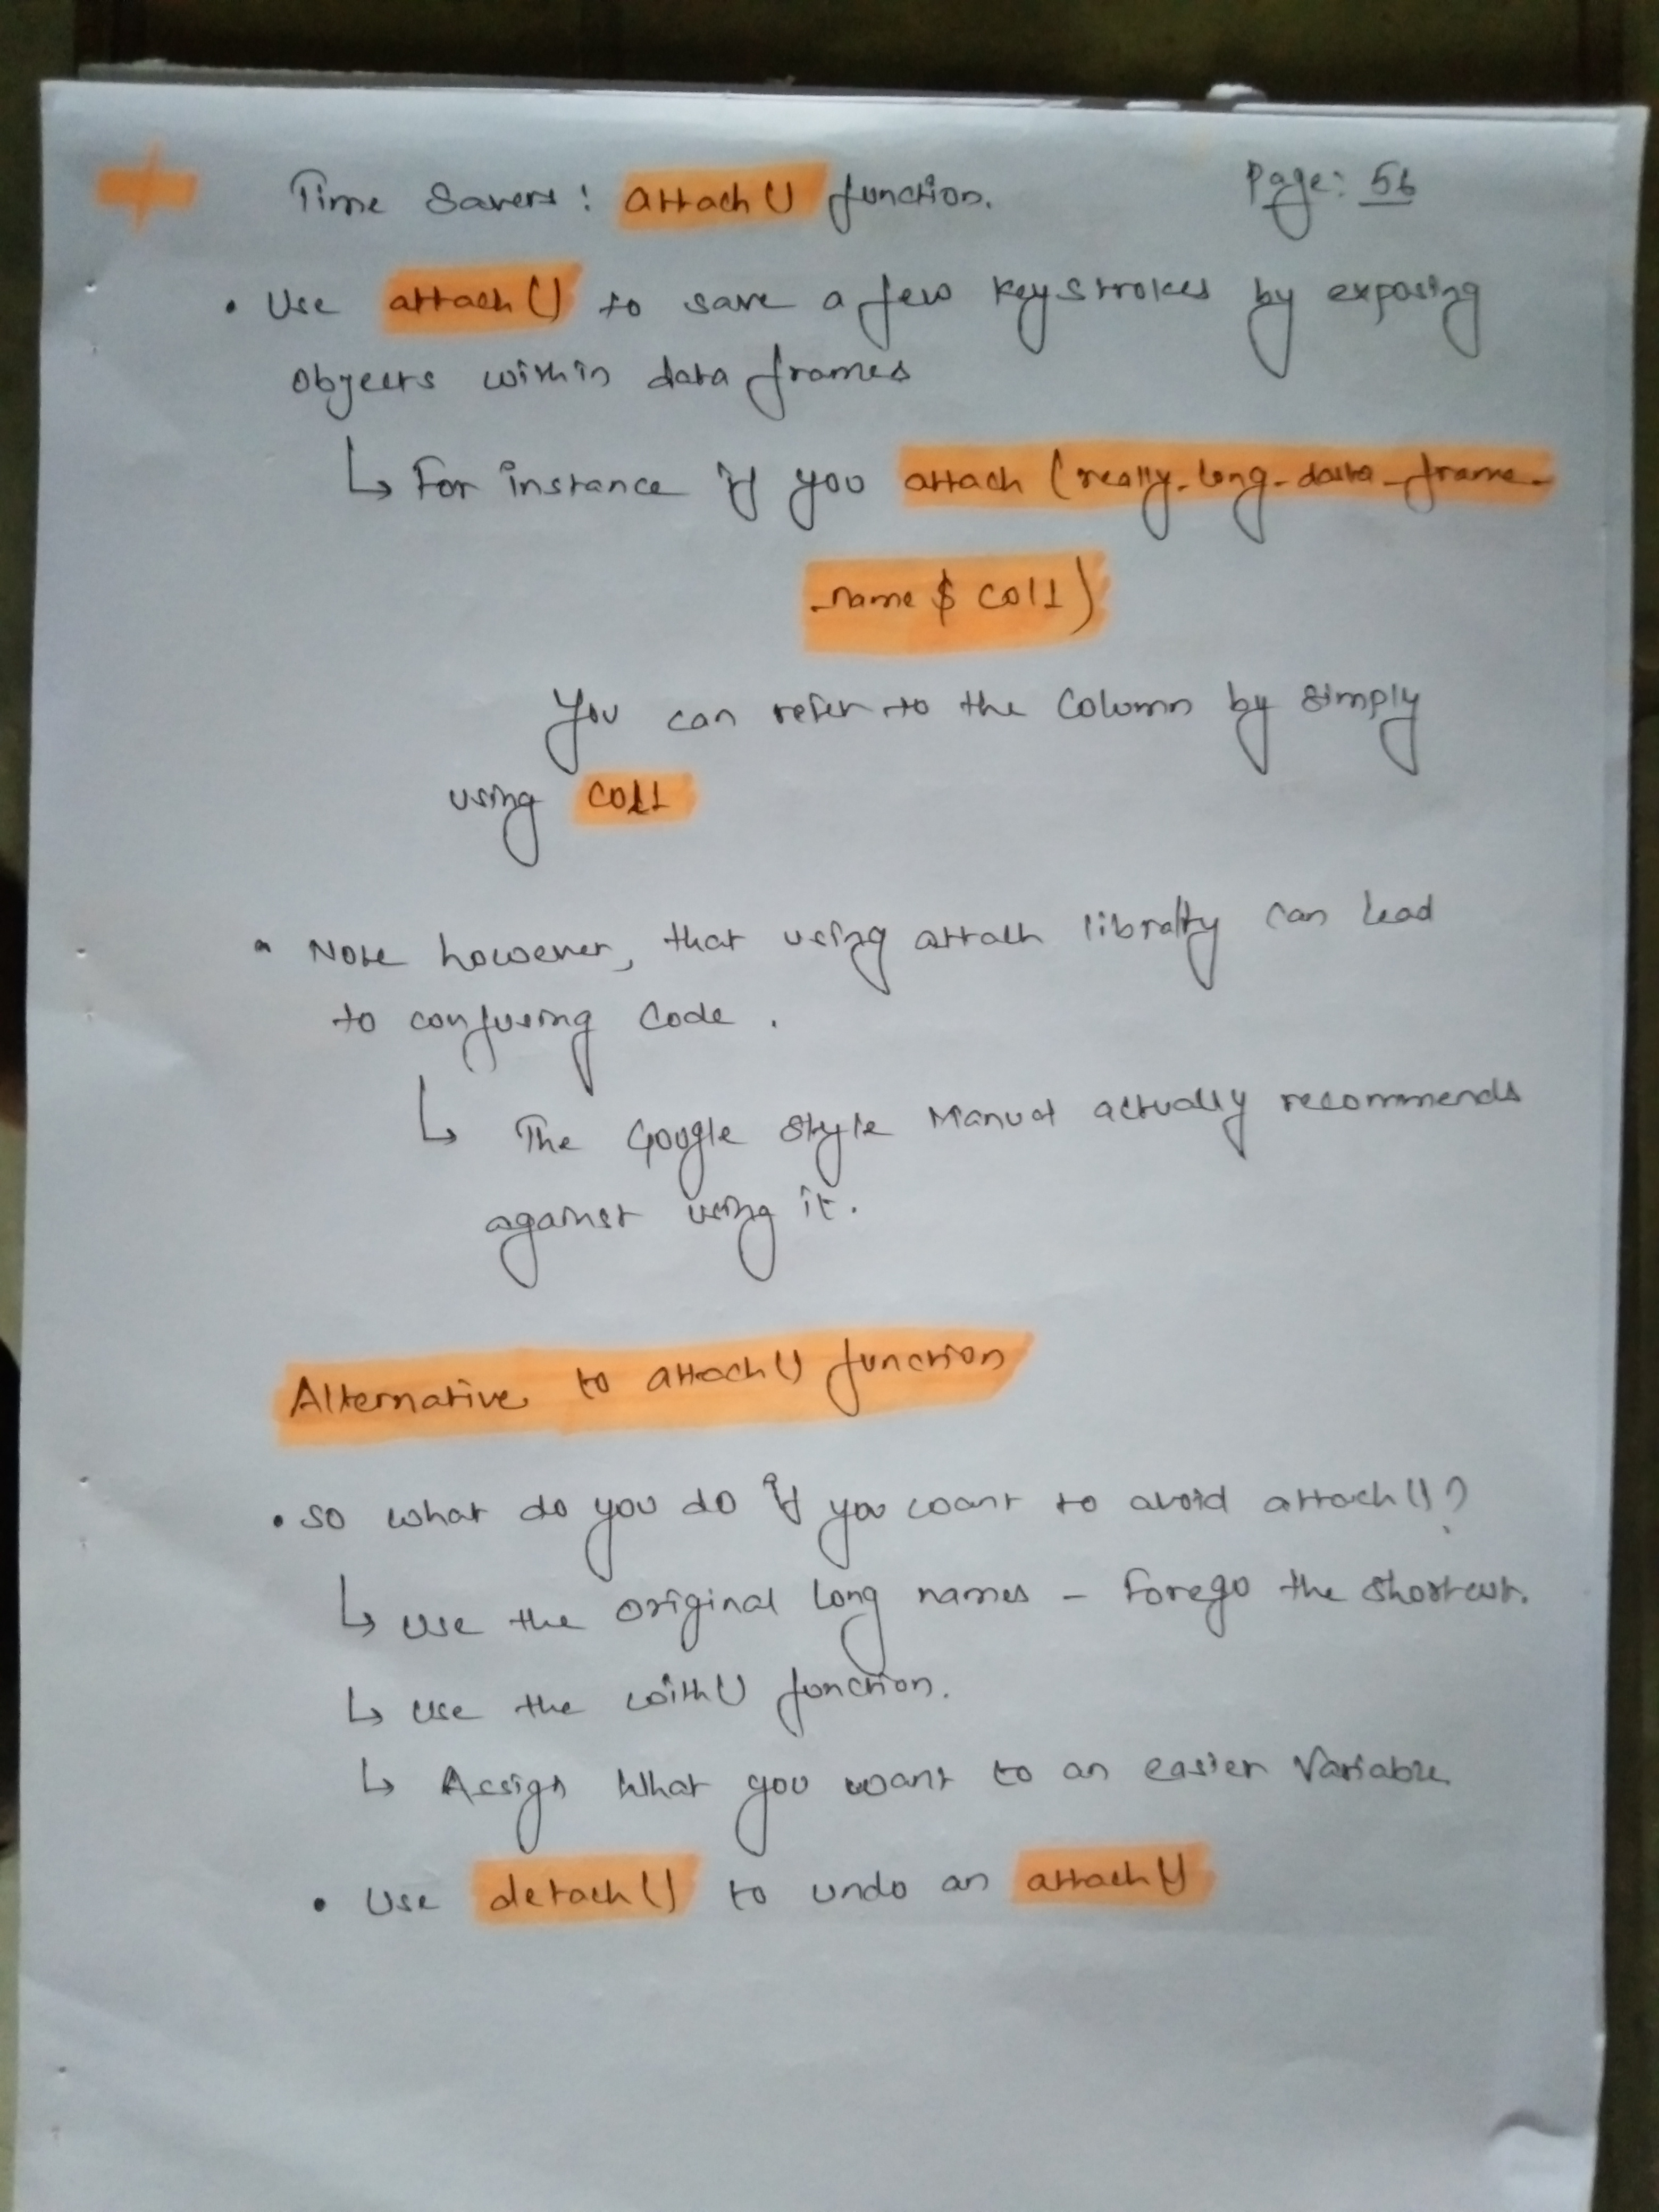 Time Savers: attach() function.
Page: 56
• Use attach() to save a few keystrokes by exposing
objects within data frames
↳ For instance if you attach (really_long_data_frame_
_name $ col1)
You can refer to the column by simply
using col1
• Note however, that using attach librally can lead
to confusing code.
↳ The Google Style Manual actually recommends
against using it.
Alternative to attach() function
• So what do you do if you want to avoid attach()?
↳ Use the original long names - Forego the shortcut.
↳ Use the with() function.
↳ Assign what you want to an easier variable
• Use detach() to undo an attach()